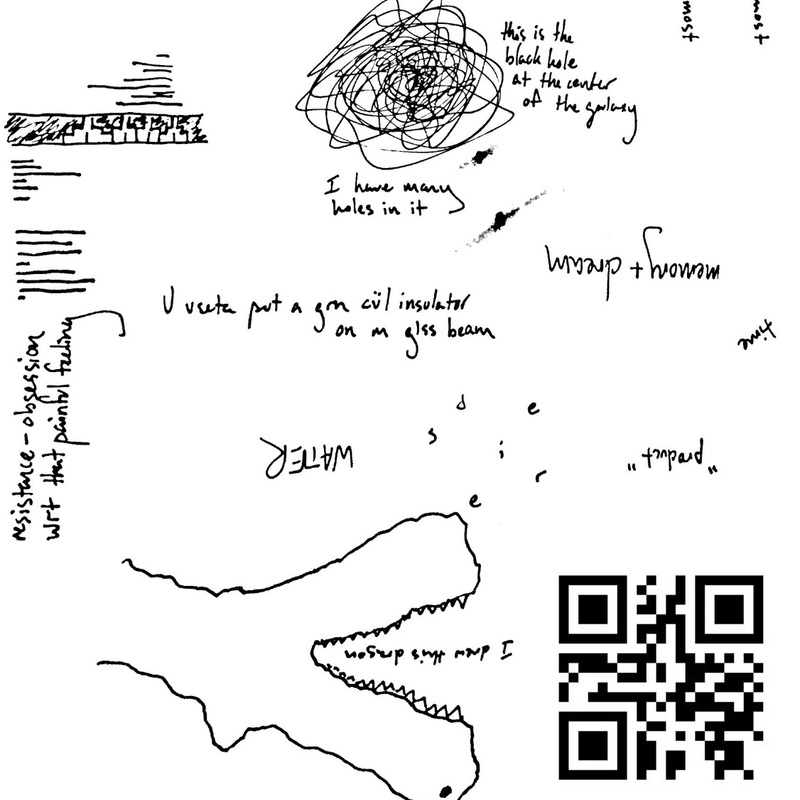 most
most
this is the
black hole
at the center
of the galaxy
I have many
holes in it
memory + dream
U useta put a grn cül insulator
on m glss beam
time
resistance – obsession
wrt that painful feeling
desire
WATER
"product"
I drew this dragon